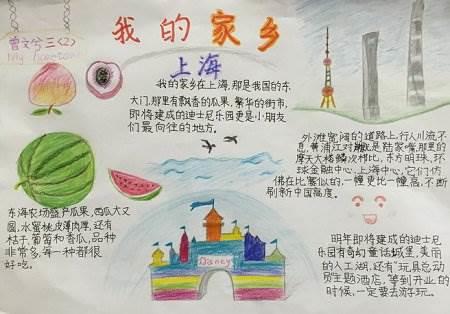 我的家乡
上海
曾文兮三(2)
我的家乡在上海,那是我国的东
大门,那里有飘香的瓜果,繁华的街市,
即将建成的迪士尼乐园更是小朋友
们最向往的地方。
外滩宽阔的道路上,行人川流不
息,黄浦江对岸就是陆家嘴,那里的
摩天大楼鳞次栉比,东方明珠、环
球金融中心、上海中心,它们仿
佛在比高似的,一幢更比一幢高,不断
刷新中国高度。
东海农场盛产瓜果,西瓜大又
圆,水蜜桃皮薄肉厚,还有
桔子,葡萄和香瓜,品种
非常多,每一种都很
好吃。
Disney
明年即将建成的迪士尼
乐园有奇幻童话城堡,美丽
的人工湖,还有"玩具总动
员主题酒店,等到开业的
时候,一定要去游玩。